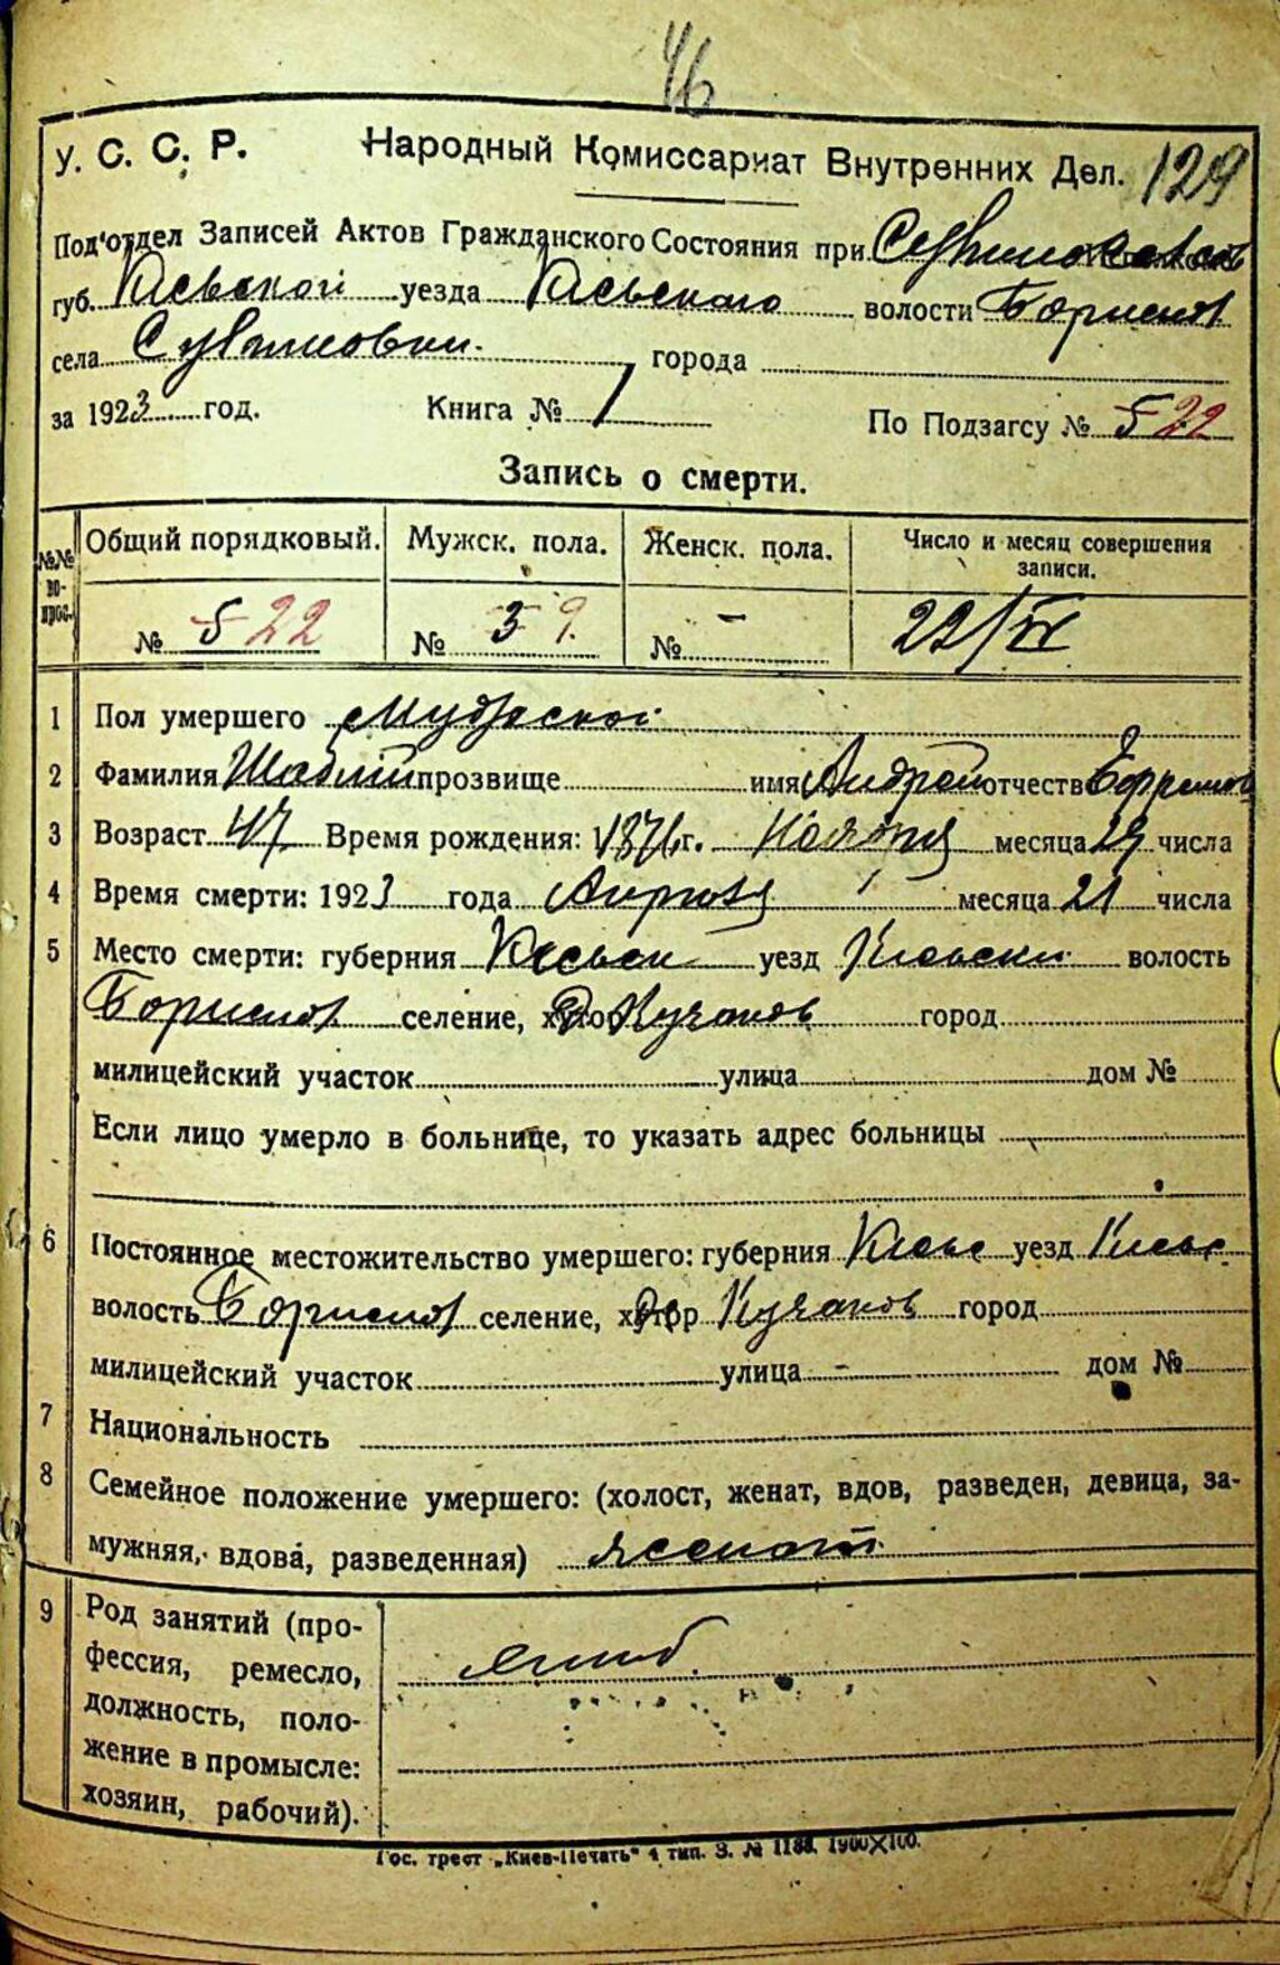 46
У. С. С. Р. Народный Комиссариат Внутренних Дел. 129
Под'отдел Записей Актов Гражданского Состояния при
губ. Киевской уезда Киевского волости
села города
за 1923 год. Книга № 1 По Подзагсу № 522
Запись о смерти.
№№ вопрос. Общий порядковый. Мужск. пола. Женск. пола. Число и месяц совершения записи.
№ 522 № 39. № – 22/IV
1 Пол умершего Мужской
2 Фамилия прозвище имя Андрей отчеств Ефремов
3 Возраст 47 Время рождения: 1876 г. Ноября месяца 29 числа
4 Время смерти: 1923 года Апреля месяца 21 числа
5 Место смерти: губерния Киевск уезд Киевски волость
селение, хутор Кучаков город
милицейский участок улица дом №
Если лицо умерло в больнице, то указать адрес больницы
6 Постоянное местожительство умершего: губерния Киевс уезд Киевс
волость селение, хутор Кучаков город
милицейский участок улица – дом №
7 Национальность
8 Семейное положение умершего: (холост, женат, вдов, разведен, девица, за-
мужняя, вдова, разведенная) женат
9 Род занятий (про-
фессия, ремесло,
должность, поло-
жение в промысле:
хозяин, рабочий).
Гос. трест „Киев-Печать" 4 тип. З. № 1188. 1900×100.